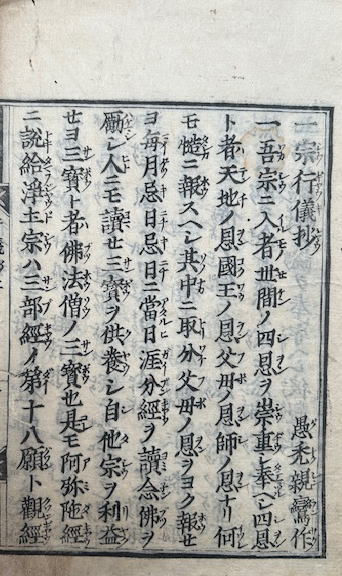 一宗行儀抄　愚禿親鸞作
一吾宗ニ入者世間ノ四恩ヲ崇重シ奉ヘシ四恩
ト者天地ノ恩國王ノ恩父母ノ恩師ノ恩ナリ何
モ慥ニ報スヘシ其中ニ取分父母ノ恩ヲヨク報セ
ヨ毎月忌日忌日ニ當日涯分経ヲ讀念佛ヲ
勵シ人ニモ讀セ三寳ヲ供養シ自他宗ヲ利益
セヨ三寳ト者佛法僧ノ三寳也是モ阿弥陁経
ニ說給浄土宗ハ三部經ノ第十八願ト觀經